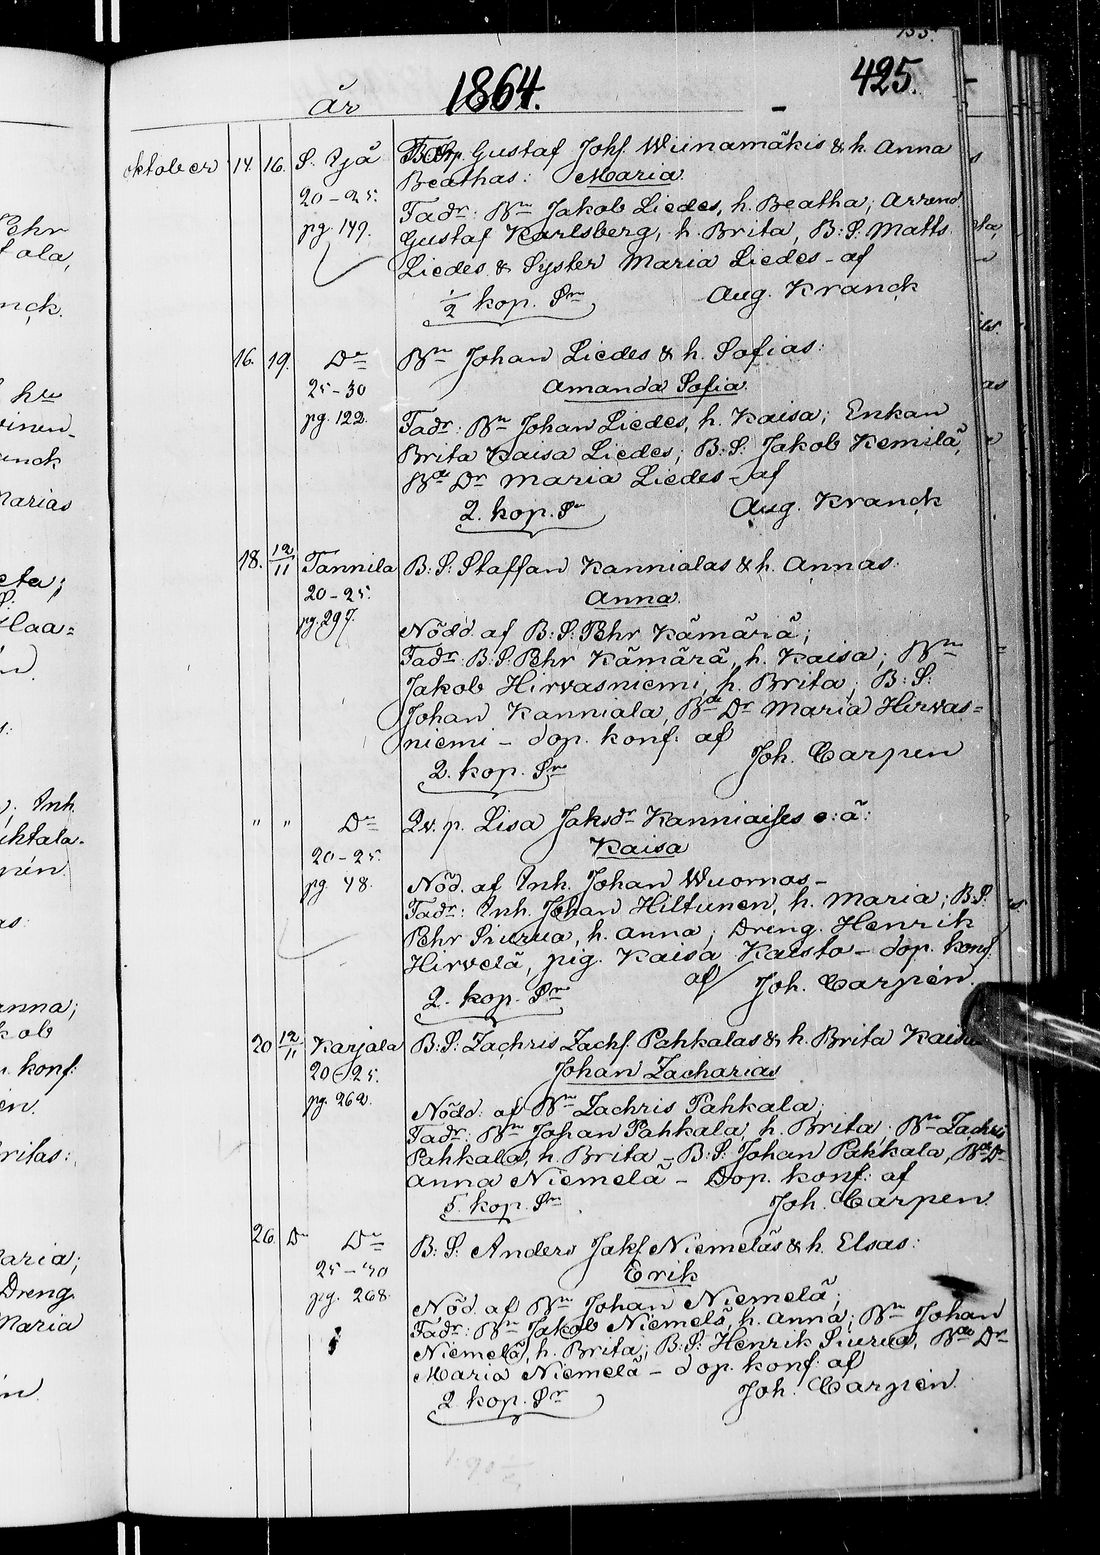 425.
år 1864.
Oktober 14. 16. S. Ijå Gustaf Johs. Wiinamäkis & h. Anna
Beathas: Maria
20-25. Fadr: Bn Jakob Liedes, h. Beatha; Arrend
pg. 149. Gustaf Karlsberg, h. Brita, B: S: Matts
Liedes & Syster Maria Liedes - af
1/2 kop. Sr Aug. Kranck
16. 19. Do Bn Johan Liedes & h. Sofias:
25-30 Amanda Sofia
pg. 122. Fadr: Bn Johan Liedes, h. Kaisa; Enkan
Brita Kaisa Liedes; B: S: Jakob Kemilä,
Bde Dr Maria Liedes - af
2. kop. Sr Aug. Kranck
18. 12/11 Tannila B: S: Staffan Kannialas & h. Annas:
20-25. Anna
pg. 297. Nödd. af B: S: Pehr Kämärä;
Fadr: B: S: Pehr Kämärä, h. Kaisa; Bn
Jakob Hirvasniemi, h. Brita; B: S:
Johan Kanniala, Bde Dr Maria Hirvas=
niemi - dop. konf: af
2. kop. Sr Joh. Carpen
" " Do Qv. p. Lisa Jaksdr o: ä:
20-25. Kaisa
pg. 48. Nöd. af Inh. Johan Wuornos -
Fadr: Inh. Johan Hiltunen, h. Maria; B: S:
Pehr Siurua, h. Anna; Dreng. Henrik
Hirvelä, pig. Kaisa Kaisto - dop. konf.
2. kop. Sr af Joh. Carpén.
20 12/11 Karjala B: S: Zachris Zachs. Pahkalas & h. Brita Kaisas
20-25. Johan Zacharias
pg. 262. Nödd: af Bn Zachris Pahkala;
Fadr: Bn Johan Pahkala, h. Brita; Bn Zachris
Pahkala, h. Brita - B: S: Johan Pahkala, Bde Dr
Anna Niemelä - Dop. konf: af
5. kop. Sr Joh. Carpen.
26. Do Do B: S: Anders Jaks. Niemeläs & h. Elsas:
25-30 Erik
pg. 268. Nöd. af Bn Johan Niemelä;
Fadr: Bn Jakob Niemelä, h. Anna; Bn Johan
Niemelä, h. Brita; B: S: Henrik Siurua, Bde Dr
Maria Niemelä - dop. konf: af
2 kop. Sr Joh. Carpén.